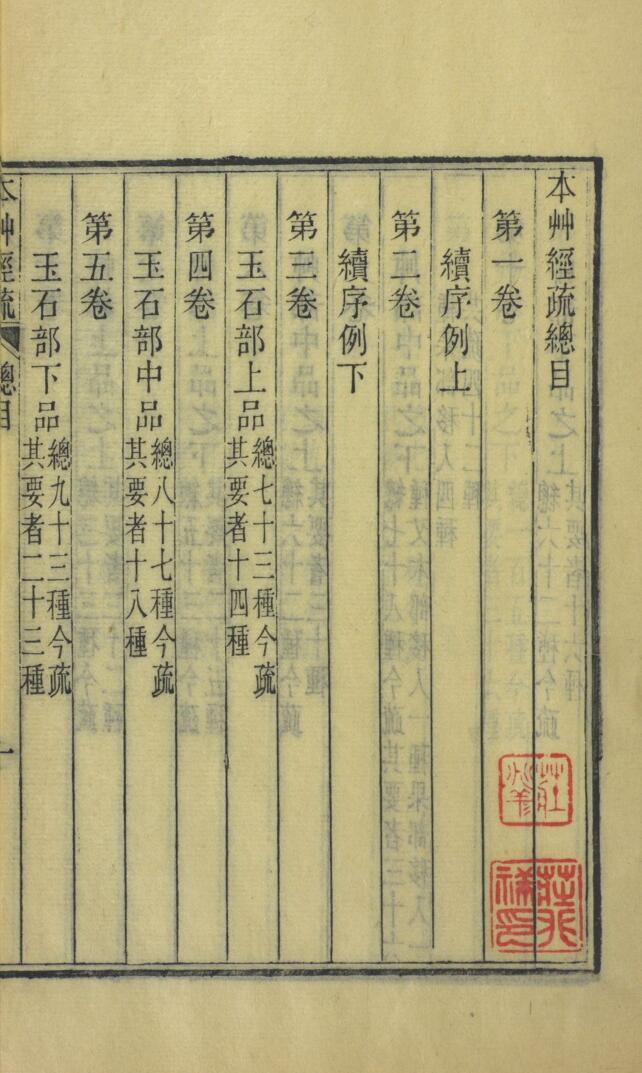 本艸經疏總目
第一卷
續序例上
第二卷
續序例下
第三卷
玉石部上品總七十三種今疏其要者十四種
第四卷
玉石部中品總八十七種今疏其要者十八種
第五卷
玉石部下品總九十三種今疏其要者二十三種
本艸經疏 總目 一